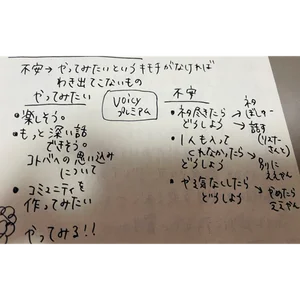 不安→やってみたいというキモチがなければ
わき出てこないもの
やってみたい
・楽しそう。
・もっと深い話
できそう。
コトバへの思い込み
について
・コミュニティを
作ってみたい
やってみる!!
voicy
プレミアム
不安
・ネタ尽きたら
どうしよう
→ネタ
ぼしゅー
話す
(リスナー
さんと)
・1人も入って
くれなかったら
どうしよう
→別に
ええやん
・やる気なくしたら
どうしよう
→やめたら
ええやん